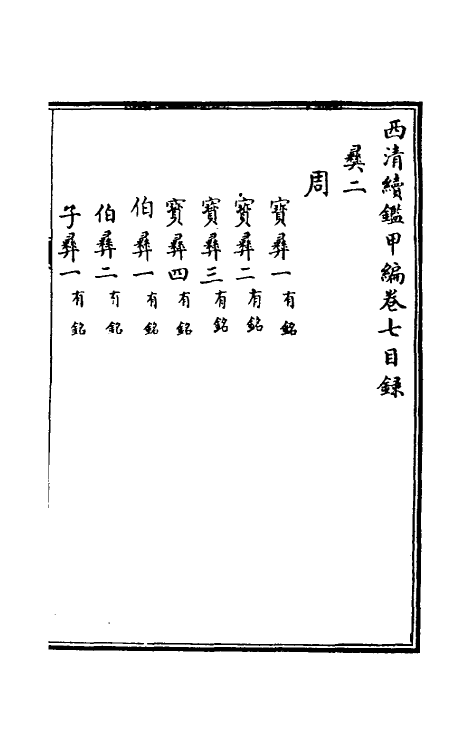 西清續鑑甲編卷七目錄
彝二
周
寶彝一有銘
寶彝二有銘
寶彝三有銘
寶彝四有銘
伯彝一有銘
伯彝二有銘
子彝一有銘